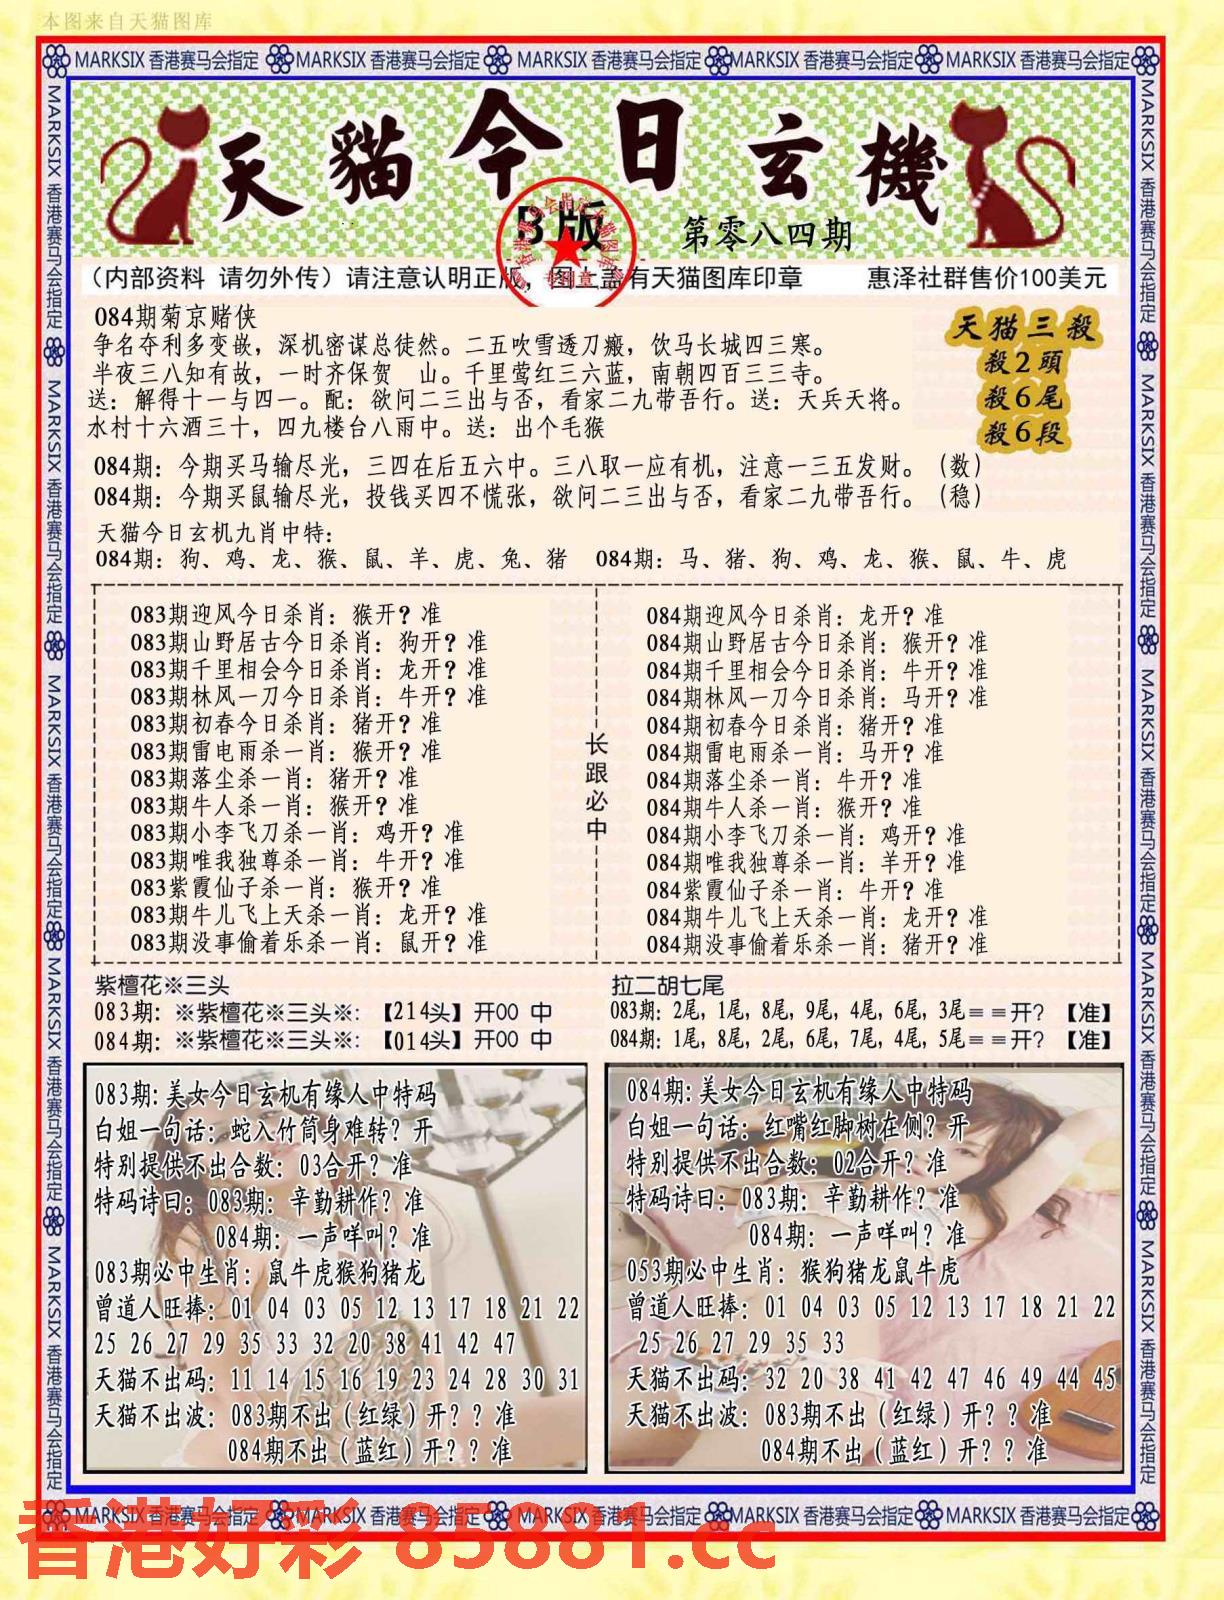 本图来自天猫图库
MARKSIX 香港赛马会指定 MARKSIX 香港赛马会指定 MARKSIX 香港赛马会指定 MARKSIX 香港赛马会指定 MARKSIX 香港赛马会指定
天貓今日玄機
B版
第零八四期
(内部资料 请勿外传) 请注意认明正版，图上盖有天猫图库印章 惠泽社群售价100美元
084期菊京赌侠
争名夺利多变嵌，深机密谋总徒然。二五吹雪透刀瘢，饮马长城四三寒。
半夜三八知有故，一时齐保贺 山。千里莺红三六蓝，南朝四百三三寺。
送：解得十一与四一。配：欲问二三出与否，看家二九带吾行。送：天兵天将。
水村十六酒三十，四九楼台八雨中。送：出个毛猴
天猫三殺
殺2頭
殺6尾
殺6段
084期：今期买马输尽光，三四在后五六中。三八取一应有机，注意一三五发财。（数）
084期：今期买鼠输尽光，投钱买四不慌张，欲问二三出与否，看家二九带吾行。（稳）
天猫今日玄机九肖中特：
084期：狗、鸡、龙、猴、鼠、羊、虎、兔、猪 084期：马、猪、狗、鸡、龙、猴、鼠、牛、虎
083期迎风今日杀肖：猴开？准
083期山野居古今日杀肖：狗开？准
083期千里相会今日杀肖：龙开？准
083期林风一刀今日杀肖：牛开？准
083期初春今日杀肖：猪开？准
083期雷电雨杀一肖：猴开？准
083期落尘杀一肖：猪开？准
083期牛人杀一肖：猴开？准
083期小李飞刀杀一肖：鸡开？准
083期唯我独尊杀一肖：牛开？准
083紫霞仙子杀一肖：猴开？准
083期牛儿飞上天杀一肖：龙开？准
083期没事偷着乐杀一肖：鼠开？准
长跟必中
084期迎风今日杀肖：龙开？准
084期山野居古今日杀肖：猴开？准
084期千里相会今日杀肖：牛开？准
084期林风一刀今日杀肖：马开？准
084期初春今日杀肖：猪开？准
084期雷电雨杀一肖：马开？准
084期落尘杀一肖：牛开？准
084期牛人杀一肖：猴开？准
084期小李飞刀杀一肖：鸡开？准
084期唯我独尊杀一肖：羊开？准
084紫霞仙子杀一肖：牛开？准
084期牛儿飞上天杀一肖：龙开？准
084期没事偷着乐杀一肖：猪开？准
紫檀花※三头
083期：※紫檀花※三头※：【214头】开00 中
084期：※紫檀花※三头※：【014头】开00 中
拉二胡七尾
083期：2尾，1尾，8尾，9尾，4尾，6尾，3尾＝＝开？【准】
084期：1尾，8尾，2尾，6尾，7尾，4尾，5尾＝＝开？【准】
083期：美女今日玄机有缘人中特码
白姐一句话：蛇入竹筒身难转？开
特别提供不出合数：03合开？准
特码诗曰：083期：辛勤耕作？准
084期：一声咩叫？准
083期必中生肖：鼠牛虎猴狗猪龙
曾道人旺捧：01 04 03 05 12 13 17 18 21 22
25 26 27 29 35 33 32 20 38 41 42 47
天猫不出码：11 14 15 16 19 23 24 28 30 31
天猫不出波：083期不出（红绿）开？？准
084期不出（蓝红）开？？准
084期：美女今日玄机有缘人中特码
白姐一句话：红嘴红脚树在侧？开
特别提供不出合数：02合开？准
特码诗曰：083期：辛勤耕作？准
084期：一声咩叫？准
053期必中生肖：猴狗猪龙鼠牛虎
曾道人旺捧：01 04 03 05 12 13 17 18 21 22
25 26 27 29 35 33
天猫不出码：32 20 38 41 42 47 46 49 44 45
天猫不出波：083期不出（红绿）开？？准
084期不出（蓝红）开？？准
MARKSIX 香港赛马会指定 MARKSIX 香港赛马会指定 MARKSIX 香港赛马会指定 MARKSIX 香港赛马会指定 MARKSIX 香港赛马会指定
MARKSIX 香港赛马会指定 MARKSIX 香港赛马会指定 MARKSIX 香港赛马会指定 MARKSIX 香港赛马会指定 MARKSIX 香港赛马会指定
MARKSIX 香港赛马会指定 MARKSIX 香港赛马会指定 MARKSIX 香港赛马会指定 MARKSIX 香港赛马会指定 MARKSIX 香港赛马会指定
香港好彩 85881.cc